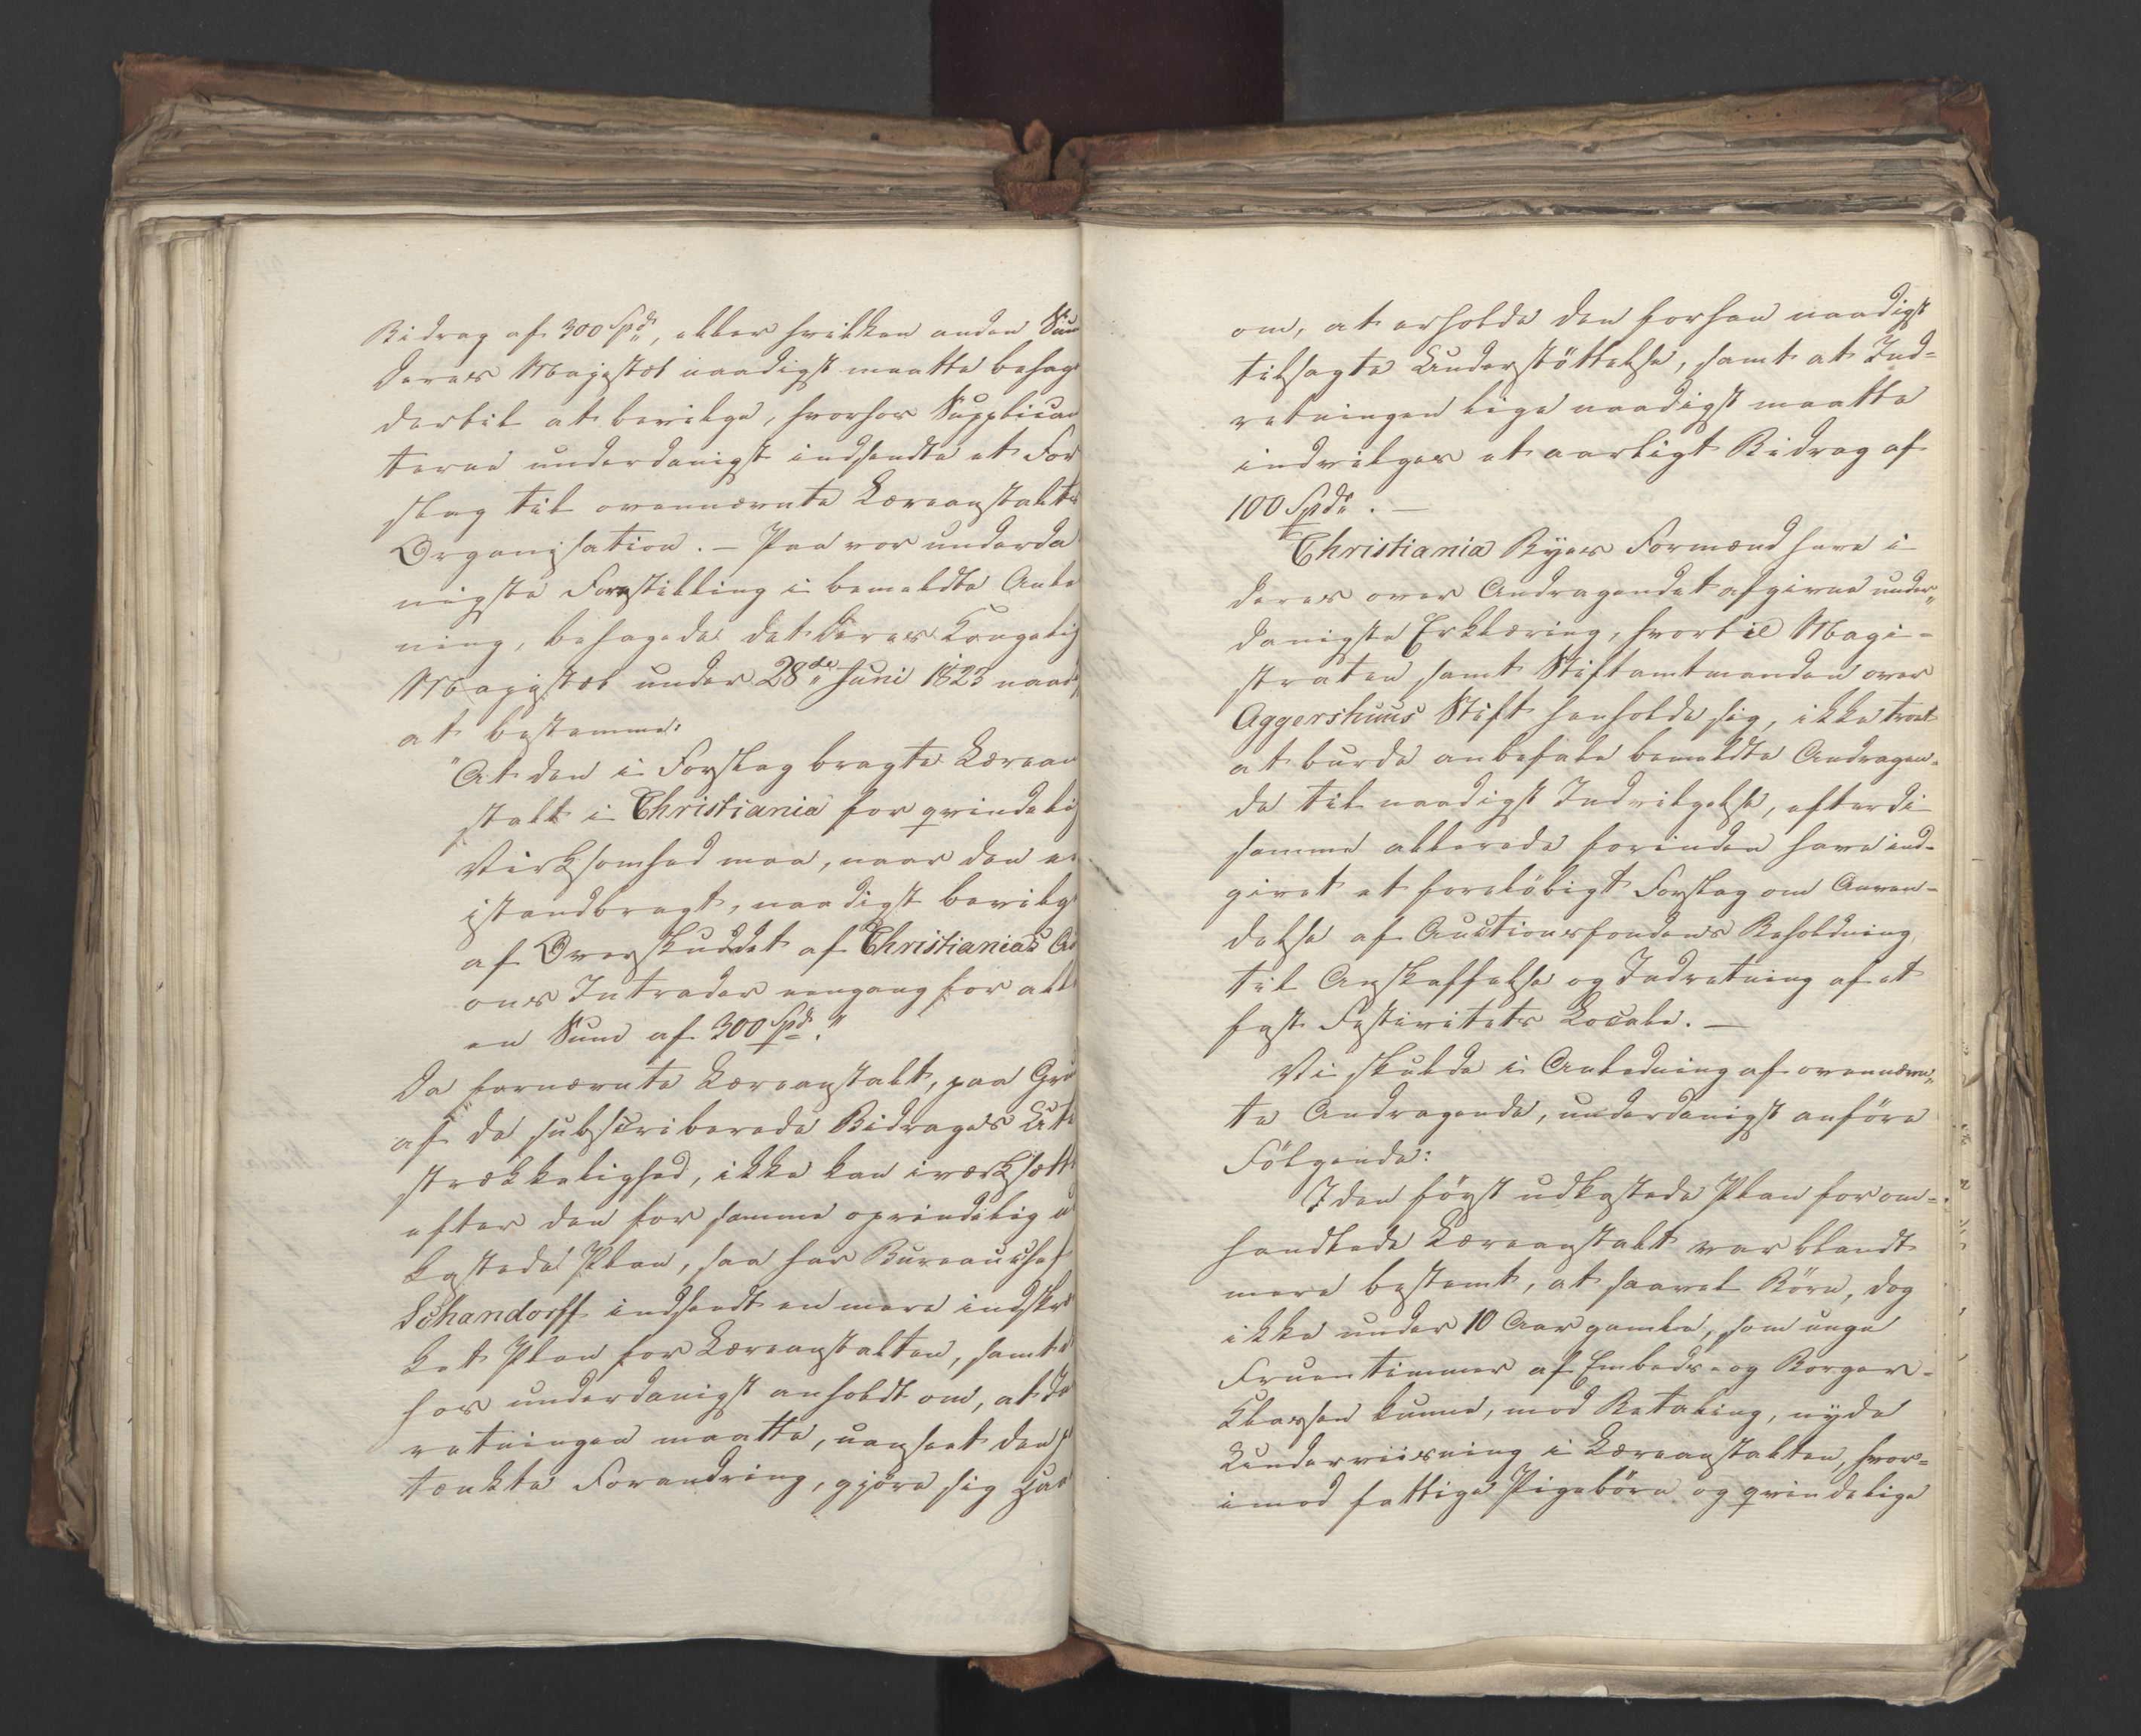 Bidrag af 300 Spd, eller hvilken anden Sum
Deres Majestæt naadigst maatte behag
dertil at bevilge, hvorhos Supplican
terne underdanigst indsendte et For
slag til ovennævnte Læreanstalts
Organisation. – Paa vor underda
nigste Forestilling i bemeldte Anled
ning, behagede det Deres Kongelig
Majestæt under 28de Juni 1823 naad
at bestemme:
"At den i Forslag bragte Lærean
stalt i Christiania for qvindelig
Virksomhed maa, naar den er
istandbragt, naadigst bevilg
af Overskuddet af Christianias Au
ons Intrader eengang for all
en Sum af 300 Spd."
Da fornævnte Læreanstalt, paa Gru
af de subscriberede Bidrages Util
strækkelighed, ikke kan iværksætt
efter den for samme oprindelig u
kastede Plan, saa har Bureauchef
Schandorff indsendt en mere indskræ
ket Plan for Læreanstalten, samt
hos underdanigst anholdt om, at In
retningen maatte, uanseet den
tænkte Forandring, gjøre sig Haa
om, at erholde den forhen naadigst
tilsagte Understöttelse, samt at Ind=
retningen lige naadigst maatte
indvilges et aarligt Bidrag af
100 Spd. –
Christiania Byes Formænd have i
deres over Andragendet afgivne under„
danigste Erklæring, hvortil Magi=
straten samt Stiftamtmanden over
Aggershuus Stift henholde sig, ikke troet
at burde anbefale bemeldte Andragen=
de til naadigst Indvilgelse, efterdi
samme allerede forinden have ind=
givet et foreløbigt Forslag om Anven=
delse af Auctionsfondens Beholdning,
til Anskaffelse og Indretning af et
fast Festivitets Locale. –
Vi skulde i Anledning af ovennævn„
te Andragende, underdanigst anföre
Fölgende:
I den först udkastede Plan for om=
handlede Læreanstalt var blandt
mere bestemt, at saavel Börn, dog
ikke under 10 Aar gamle, som unge
Fruentimmer af Embeds- og Borger=
Classen kunne, mod Betaling, nyde
Underviisning i Læreanstalten, hvor=
imod fattige Pigebörn og qvindelige